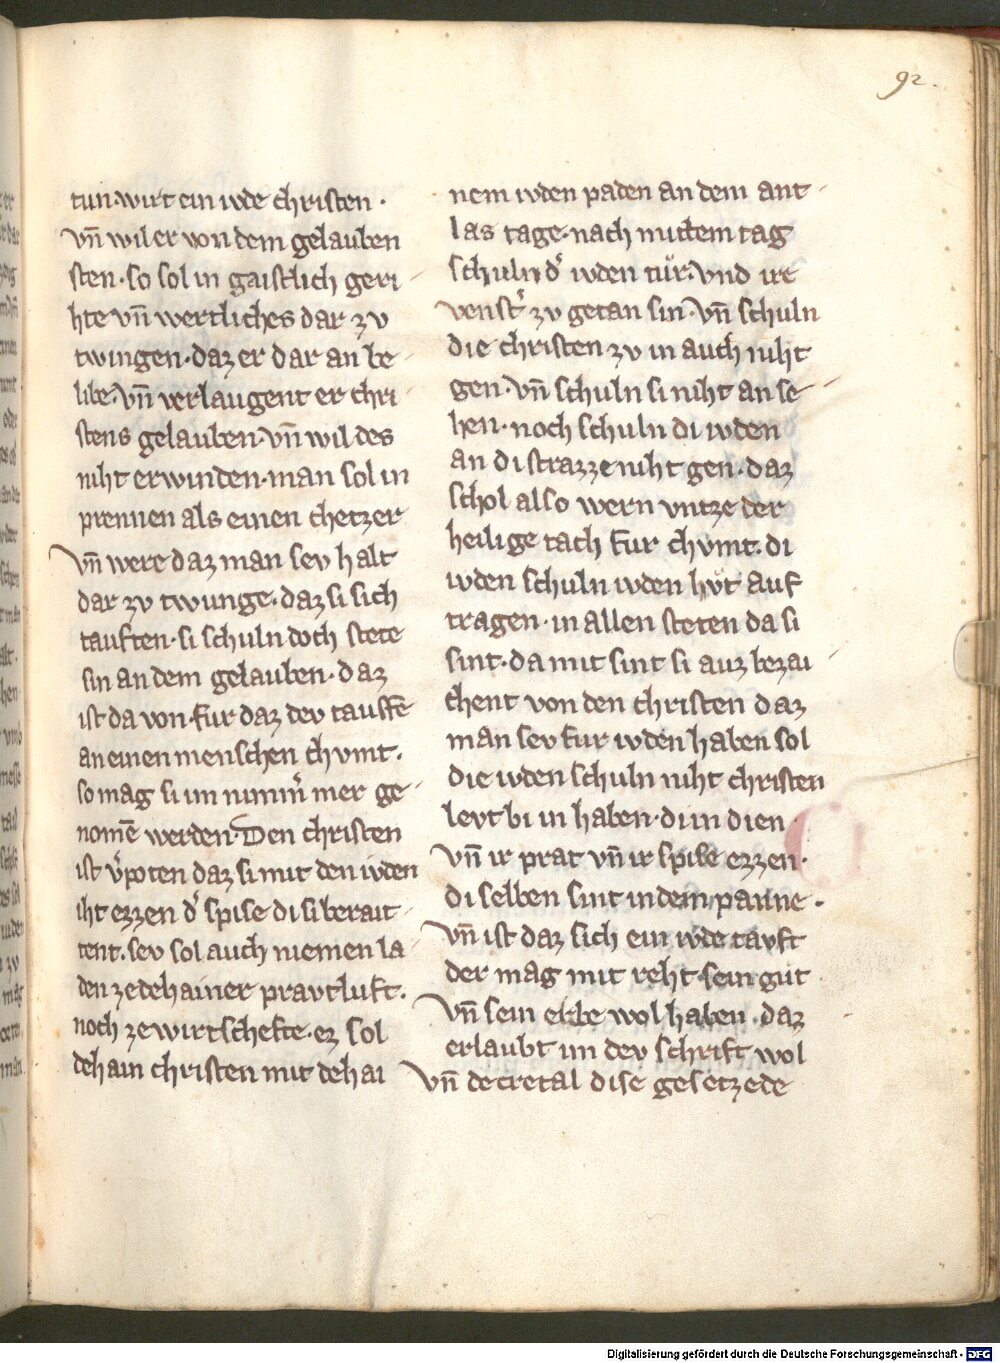 92.
tun·wirt ein iude christen·
vn̄ wil er von dem gelauben
sten·so sol in gaistlich geri-
hte vn̄ wertliches dar zv
twingen·daz er dar an be-
libe·vn̄ verlaugent er chri-
stens gelauben·vn̄ wil des
niht erwinden·man sol in
prennen als einen chetzer
vn̄ were daz man sev halt
dar zv twunge·daz si sich
tauften·si schuln doch stete
sin an dem gelauben·daz
ist da von·fur daz dev tauffe
an einen menschen chvmt·
so mag si im nimm̄ mer ge-
nomē werden·Den christen
ist v̄poten daz si mit den iuden
iht ezzen d᾽ spise di si berait-
tent·sev sol auch niemen la-
den ze dehainer pravtluft·
noch ze wirtschefte·ez sol
dehain christen mit dehai
nem iuden paden an dem ant-
las tage·nach mittem tag
schuln d᾽ iuden tür·vnd ire
venst᾽ zv getan sin·vn̄ schuln
die christen zv in auch niht
gen·vn̄ schuln si niht an se-
hen·noch schuln di iuden
an di strazze niht gen·daz
schol also wern vntze der
heilige tach fur chvmt·di
iuden schuln iuden hvt auf
tragen·in allen steten da si
sint·da mit sint si auz bezai-
chent von den christen daz
man sev fur iuden haben sol
die iuden schuln niht christen
levt bi in haben·di in dien
vn̄ ir prat vn̄ ir spise ezzen·
di selben sint in dem panne·
vn̄ ist daz sich ein iude tavft
der mag mit reht sein gut
vn̄ sein erbe wol haben·daz
erlaubt im dev schrift wol
vn̄ decretal dise gesetzede
Digitalisierung gefördert durch die Deutsche Forschungsgemeinschaft · DFG